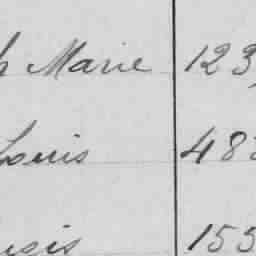 h Marie 123
Louis 48
155